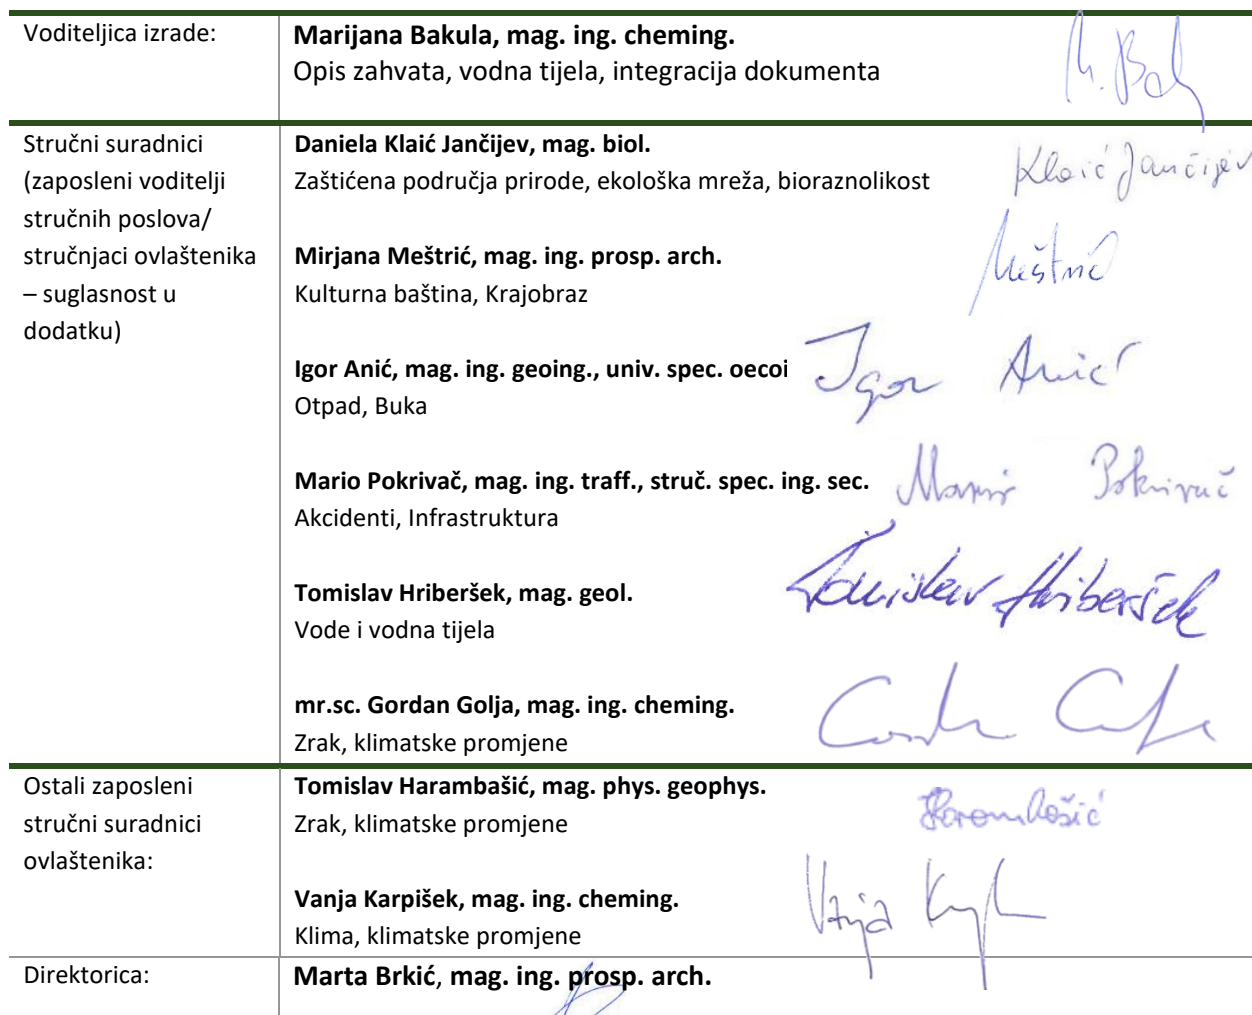 Voditeljica izrade:
Marijana Bakula, mag. ing. cheming.
Opis zahvata, vodna tijela, integracija dokumenta
M. Bak
Stručni suradnici
(zaposleni voditelji
stručnih poslova/
stručnjaci ovlaštenika
– suglasnost u
dodatku)
Daniela Klaić Jančijev, mag. biol.
Zaštićena područja prirode, ekološka mreža, bioraznolikost
Klaić Jančijev
Mirjana Meštrić, mag. ing. prosp. arch.
Kulturna baština, Krajobraz
Meštrić
Igor Anić, mag. ing. geoing., univ. spec. oecoi
Otpad, Buka
Igor Anić
Mario Pokrivač, mag. ing. traff., struč. spec. ing. sec.
Akcidenti, Infrastruktura
Mario Pokrivač
Tomislav Hriberšek, mag. geol.
Vode i vodna tijela
Tomislav Hriberšek
mr.sc. Gordan Golja, mag. ing. cheming.
Zrak, klimatske promjene
Ostali zaposleni
stručni suradnici
ovlaštenika:
Tomislav Harambašić, mag. phys. geophys.
Zrak, klimatske promjene
Harambašić
Vanja Karpišek, mag. ing. cheming.
Klima, klimatske promjene
Vanja
Direktorica:
Marta Brkić, mag. ing. prosp. arch.